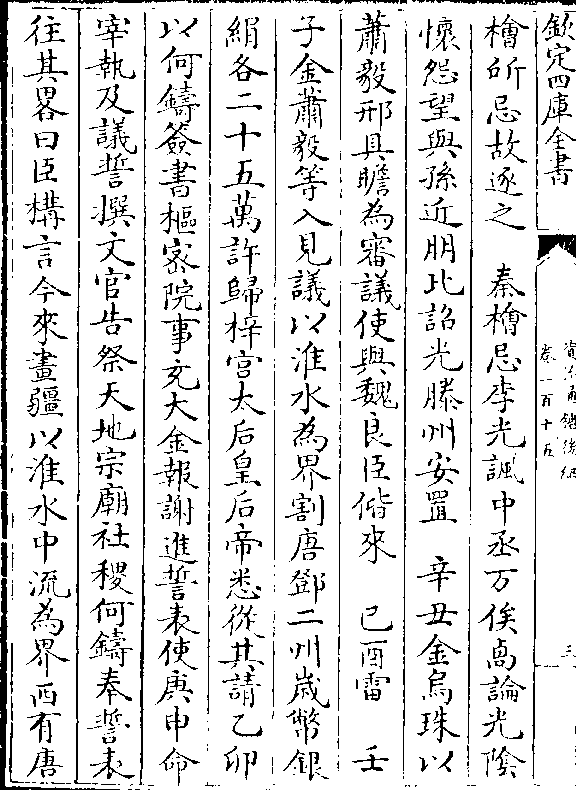 欽定四庫全書
資治通鑑後編
卷一百十五
三
檜所忌故逐之　秦檜忌李光諷中丞万俟卨論光陰
懷怨望與孫近朋比詔光滕州安置　辛丑金烏珠以
蕭毅邢具瞻為審議使與魏良臣偕來　己酉雷　壬
子金蕭毅等入見議以淮水為界割唐鄧二州歲幣銀
絹各二十五萬許歸梓宮太后皇后帝悉從其請乙卯
以何鑄簽書樞密院事充大金報謝進誓表使庚申命
宰執及議誓撰文官告祭天地宗廟社稷何鑄奉誓表
往其畧曰臣構言今來畫疆以淮水中流為界西有唐